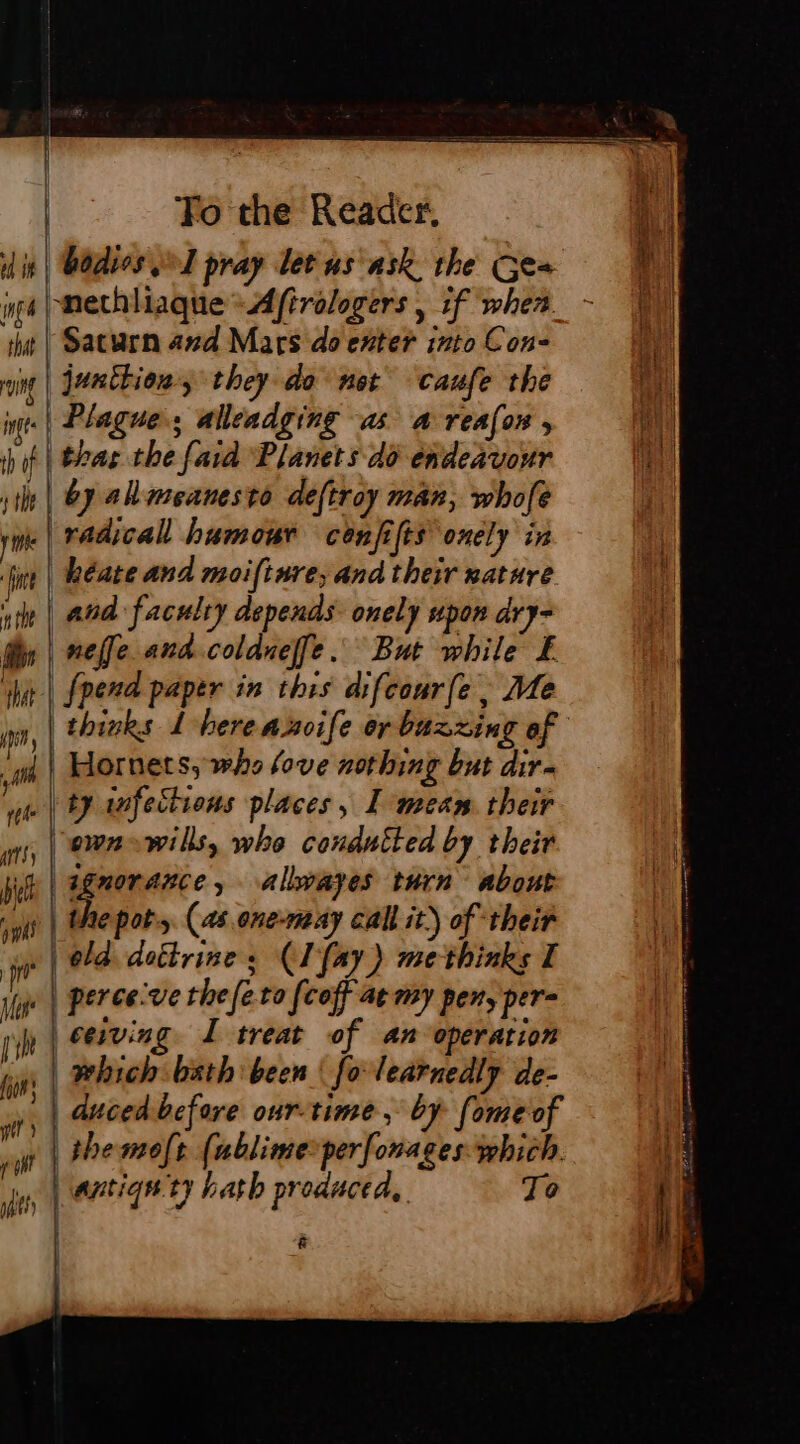 To the Reader.
bodies, I pray let us ask the Ge-
nethliaque Aſtrologers, if when
Saturn and Mars do enter into Con-
junction, they do not cauſe the
Plague; alleadging as a reaſon,
that the ſaid Planets do endeavour
by all meanes to deſtroy man, whoſe
radicall humour conſiſts onely in
heate and moiſture, and their nature
and faculty depends onely upon dry-
neſſe and coldneſſe. But while I
ſpend paper in this diſcourſe, Me
thinks I here a noiſe or buzzing of
Hornets, who love nothing but dir-
ty infectious places, I mean their
own wills, who conducted by their
ignorance, allwayes turn about
the pot, (as one may call it) of their
old doctrine; (I ſay) methinks I
perceive theſe to ſcoff at my pen, per-
ceiving I treat of an operation
which hath been ſo learnedly de-
duced before our time, by ſome of
the moſt ſublime perſonages which
antiquity hath produced, To